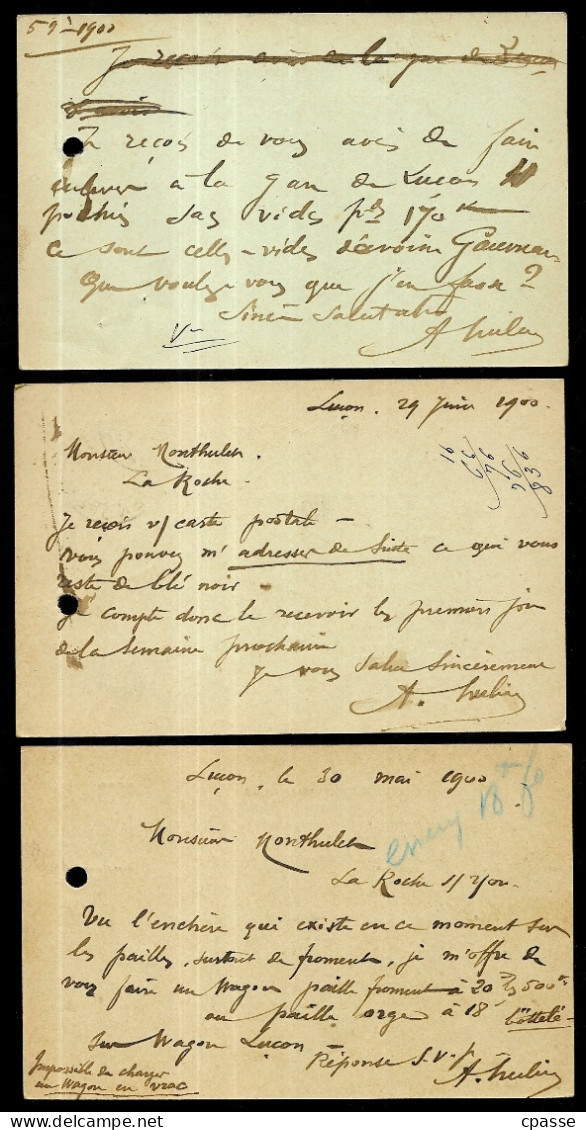 1900
Je reçois avis de la gare de Luçon
Je reçois de vous avis de faire
enlever à la gare de Luçon 10
pochés sacs vides 170 k
ce sont celles vides d'avoine
Que voulez vous que j'en fasse ?
A. Hulin
Luçon. 29 Juin 1900.
Monsieur Monthulet.
La Roche.
Je reçois v/ carte postale -
vous pouvez m' adresser de suite ce qui vous
reste de blé noir -
Je compte donc le recevoir les premiers jou
de la semaine prochaine
Je vous salue sincèrement
A. Hulin
Luçon. le 30 mai 1900
Monsieur Monthulet
La Roche s/ Yon.
Vu l'enchère qui existe en ce moment sur
les pailles, surtout de froment, je m'offre de
vous faire un Wagon paille froment à 20 500
ou paille orge à 18 bottelé
sur Wagon Luçon
Réponse S.V.P.
Impossible de charger
un Wagon en vrac
A. Hulin
© cpasse